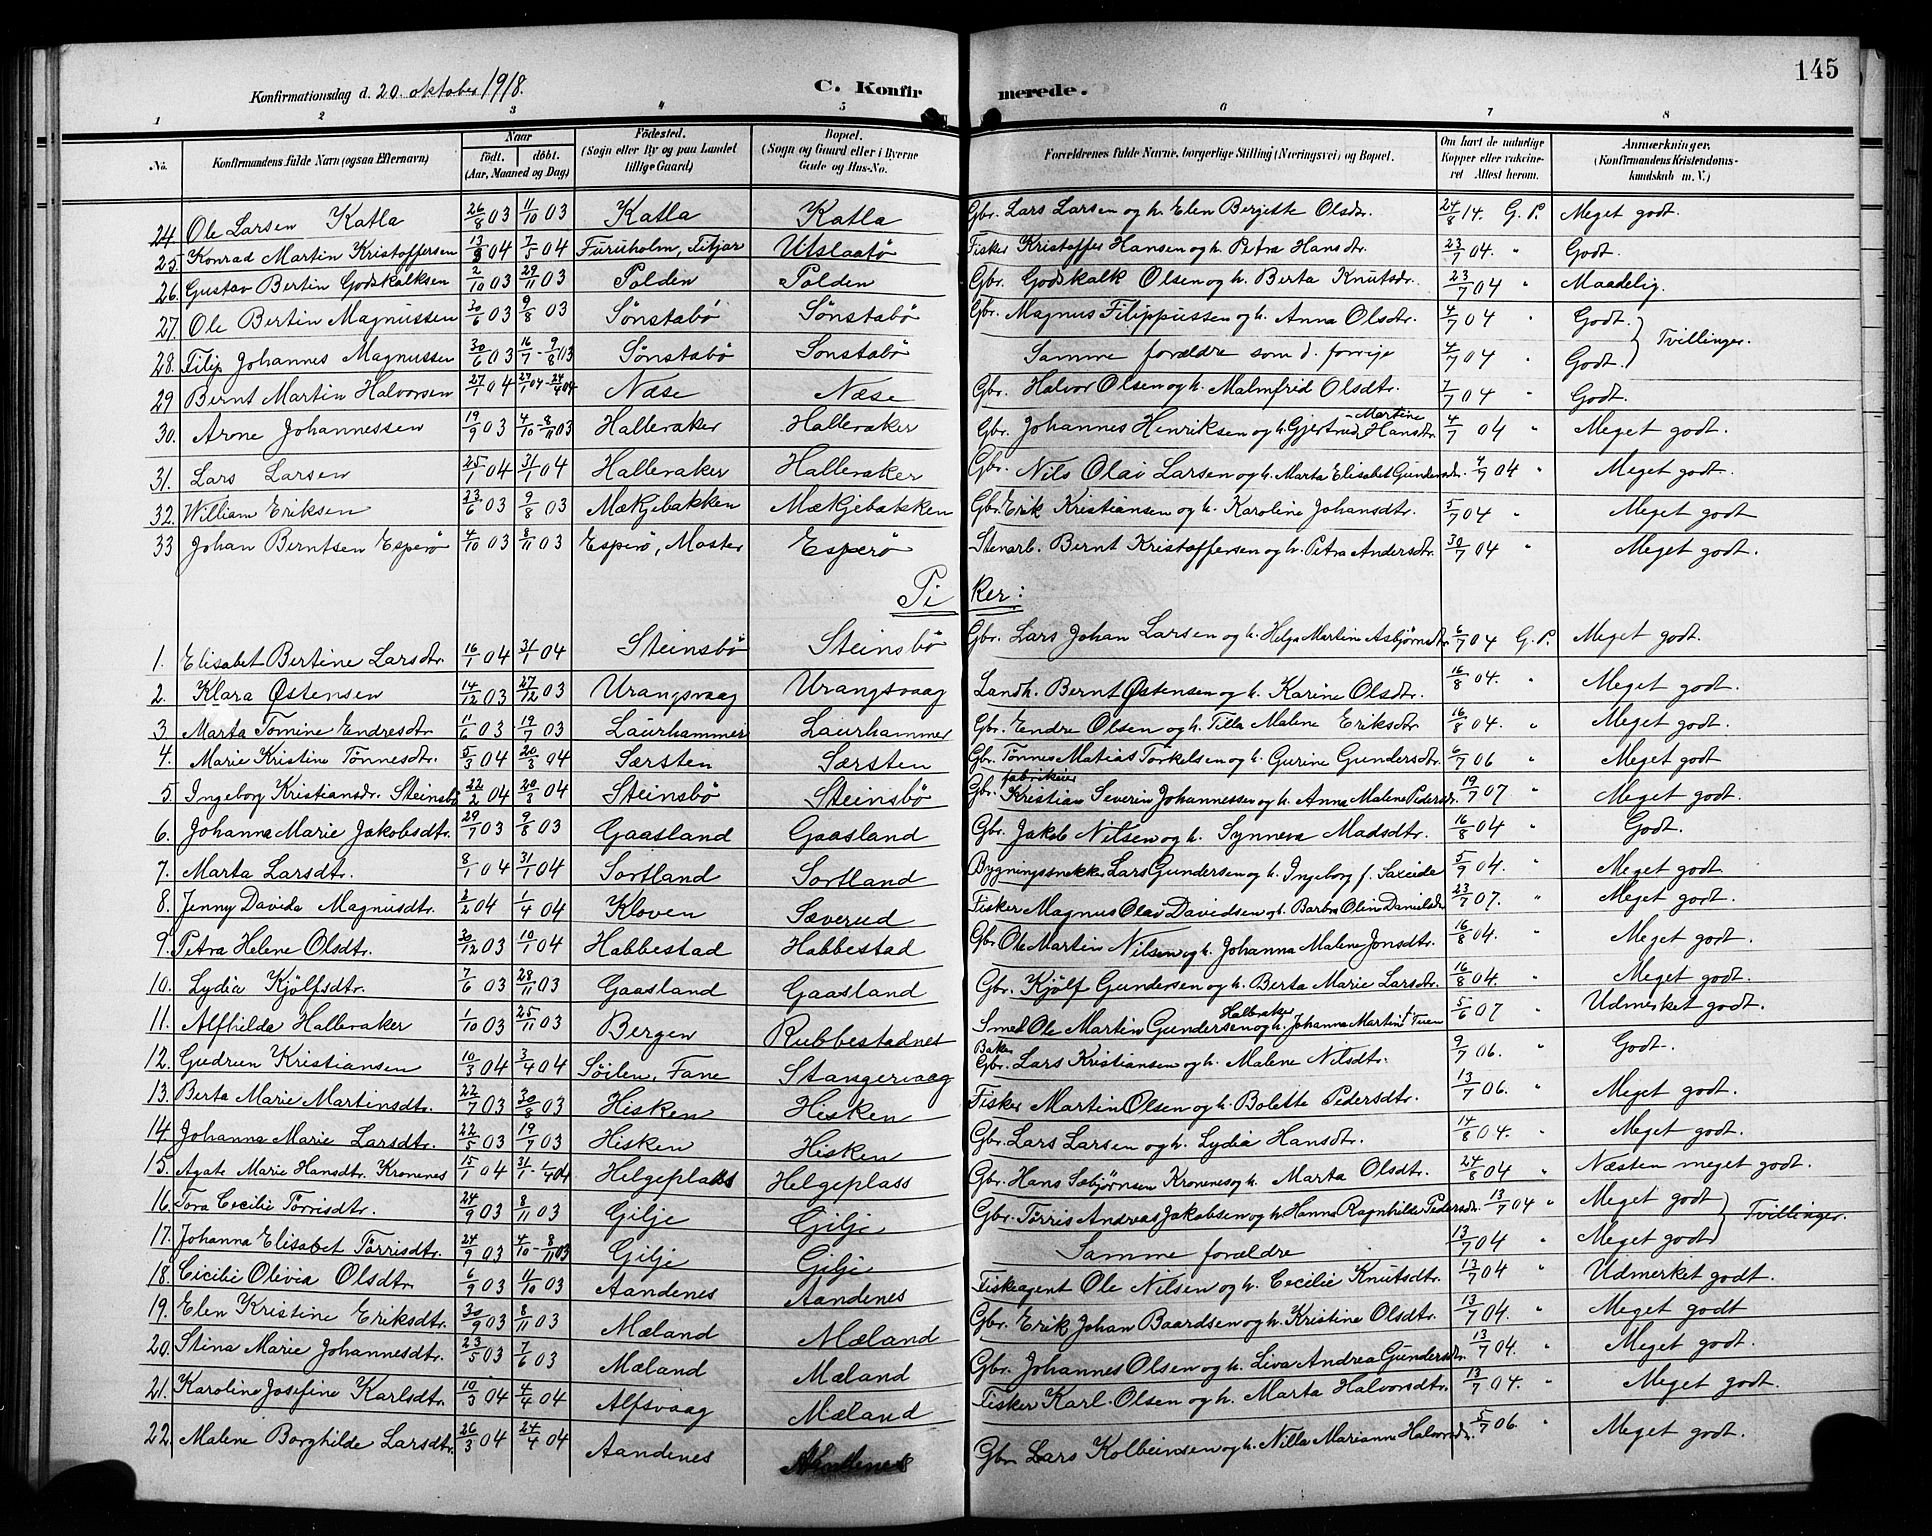 145
Konfirmationsdag d. 20. oktober 1918. C. Konfirmerede.
1 2 3 4 5 6 7 8
No. Konfirmandens fulde Navn (ogsaa Efternavn) Naar født. døbt. (Aar, Maaned og Dag) Fødested. (Sogn eller By og paa Landet tillige Gaard) Bopæl. (Sogn og Gaard eller i Byerne Gade og Hus-No. Forældrenes fulde Navne, borgerlige Stilling (Næringsvei) og Bopæl. Om havt de naturlige Kopper eller vakcineret Attest herom. Anmærkninger. (Konfirmandens Kristendomskundskab m. V.)
24. Ole Larsen Katla 26/8 03 11/10 03 Katla Katla Gbr. Lars Larsen og h. Elen Berjette Olsdtr. 24/8 14. G. P. Meget godt.
25. Konrad Martin Kristoffersen 13/3 04 7/5 04 Furuholm, Fitjar Utslaatö Fisker Kristoffer Hansen og h. Petra Hansdtr. 23/7 04. " Godt.
26. Gustav Bertin Godskalksen 2/10 03 29/11 03 Polden Polden Gbr. Godskalk Olsen og h. Berta Knutsdtr. 23/7 04 " Maadelig.
27. Ole Bertin Magnussen 30/6 03 9/8 03 Sönstabö Sönstabö Gbr. Magnus Filippussen og h. Anna Olsdtr. 4/7 04 " Godt. Tvillinger.
28. Filip Johannes Magnussen 30/6 03 16/7 - 9/8 03 Sönstabö Sönstabö Samme forældre som d. forrige 4/7 04 " Godt.
29 Bernt Martin Halvorsen 27/1 04 27/1 04 - 24/4 04 Næse Næse Gbr. Halvor Olsen og h. Malmfrid Olsdtr. 7/7 04 " Godt.
30. Arne Johannessen 19/9 03 4/10 - 8/11 03 Halleraker Halleraker Gbr. Johannes Henriksen og h. Gjertrud Martine Hansdtr. 4/7 04 " Meget godt.
31. Lars Larsen 25/1 04 31/1 04 Halleraker Halleraker Gbr. Nils Olai Larsen og h. Marta Elisabet Gundersdtr. 4/7 04 " Meget godt.
32. William Eriksen 23/6 03 9/8 03 Mækjebakken Mækjebakken Gbr. Erik Kristiansen og h. Karoline Johansdtr. 5/7 04 " Meget godt
33 Johan Berntsen Esperö 4/10 03 8/11 03 Esperö, Moster Esperö Stenarb. Bernt Kristoffersen og h. Petra Andersdtr. 30/7 04 " Meget godt.
Piker:
1. Elisabet Bertine Larsdtr. 16/1 04 31/1 04 Steinsbö Steinsbö Gbr. Lars Johan Larsen og h. Helga Martine Asbjørnsdtr. 6/7 04 G. P. Meget godt.
2. Klara Østensen 14/12 03 27/12 03 Urangsvaag Urangsvaag Landh. Bernt Østensen og h. Karine Olsdtr. 16/8 04. " Meget godt.
3. Marta Tomine Endresdtr 11/6 03 19/7 03 Laurhammer Laurhammer Gbr. Endre Olsen og h. Tilla Malene Eriksdtr. 16/8 04. " Meget godt.
4. Marie Kristine Tönnesdtr. 5/3 04 20/3 04 Særsten Særsten Gbr. Tönnes Matias Torkelsen og h. Gurine Gundersdtr. 6/7 06 " Meget godt.
5. Ingeborg Kristiansdr. Steinsbö 22/2 04 20/3 04 Steinsbö Steinsbö Gbr. fabrikeier Kristian Severin Johannessen og h. Anna Malene Pedersdtr. 19/7 07 " Meget godt.
6. Johanna Marie Jakobsdtr. 29/7 03 9/8 03 Gaasland Gaasland Gbr. Jakob Nilsen og h. Synneva Madsdtr. 16/8 04 " Godt.
7. Marta Larsdtr. 8/1 04 31/1 04 Sortland Sortland Bygningssnekker Lars Gundersen og h. Ingeborg f. 5/9 04. " Meget godt.
8. Jenny Davida Magnusdtr. 2/2 04 1/4 04 Kloven Sæverud Fisker Magnus Olav Davidsen og h. Barbra Olin Danielsdtr 23/7 07. " Meget godt.
9. Petra Helene Olsdtr. 30/12 03 10/1 04 Habbestad Habbestad Gbr. Ole Martin Nilsen og h. Johanna Malene Jonsdtr. 16/8 04. " Meget godt.
10. Lydia Kjölfsdtr. 7/6 03 28/11 03 Gaasland Gaasland Gbr. Kjölf Gundersen og h. Berta Marie Larsdtr. 16/8 04. " Meget godt.
11. Alfhilda Halleraker 1/10 03 25/11 03 Bergen Rubbestadnes Smed Ole Martin Gundersen Halbraker og h. Johanna Martine f. Tuen 5/6 07 " Udmerket godt.
12. Gudrun Kristiansen 10/3 04 3/4 04 Söilen, Fane Stangervaag Baker Gbr. Lars Kristiansen og h. Malene Nilsdtr. 9/7 06. " Godt.
13. Berta Marie Martinsdtr. 22/7 03 30/8 03 Hisken Hisken Fisker Martin Olsen og h. Bolette Pedersdtr. 13/7 06. " Meget godt.
14. Johanna Marie Larsdtr. 22/5 03 19/7 03 Hisken Hisken Gbr. Lars Larsen og h. Lydia Hansdtr. 14/8 04. " Meget godt.
15. Agate Marie Hansdtr. Kronenes 15/1 04 31/1 - 1/4 04 Helgeplass Helgeplass Gbr. Hans Sæbjörnsen Kronenes og h. Marta Olsdtr. 24/8 04 " Næsten meget godt.
16. Tora Cecilie Törrisdtr. 24/9 03 8/11 03 Gilje Gilje Gbr. Törris Andreas Jakobsen og h. Hanna Ragnhilde Pedersdtr. 13/7 04 " Meget godt Tvillinger.
17. Johanna Elisabet Törrisdtr. 24/9 03 4/10 - 8/11 03 Gilje Gilje Samme forældre 13/7 04 " Meget godt
18. Cecilie Olivia Olsdtr. 6/9 03 11/10 03 Aandenes Aandenes Fiskeagent Ole Nilsen og h. Cecilie Knutsdtr. 13/7 04 " Udmerket godt.
19. Elen Kristine Eriksdtr. 30/9 03 8/11 03 Mæland Mæland Gbr. Erik Johan Baardsen og h. Kristine Olsdtr. 13/7 04. " Meget godt
20. Stina Marie Johannesdtr. 23/5 03 7/6 03 Mæland Mæland Gbr. Johannes Olsen og h. Liva Andrea Gundersdtr. 13/7 04. " Meget godt.
21. Karoline Josefine Karlsdtr. 10/3 04 4/4 04 Alfsvaag Mæland Fisker Karl Olsen og h. Marta Halvorsdtr. 13/7 04. " Meget godt.
22. Malene Borghilde Larsdtr. 26/3 04 24/4 04 Aandenes Gbr. Lars Kolbeinsen og h. Nilla Marianne Halvorsdtr. 5/7 06. " Meget godt.